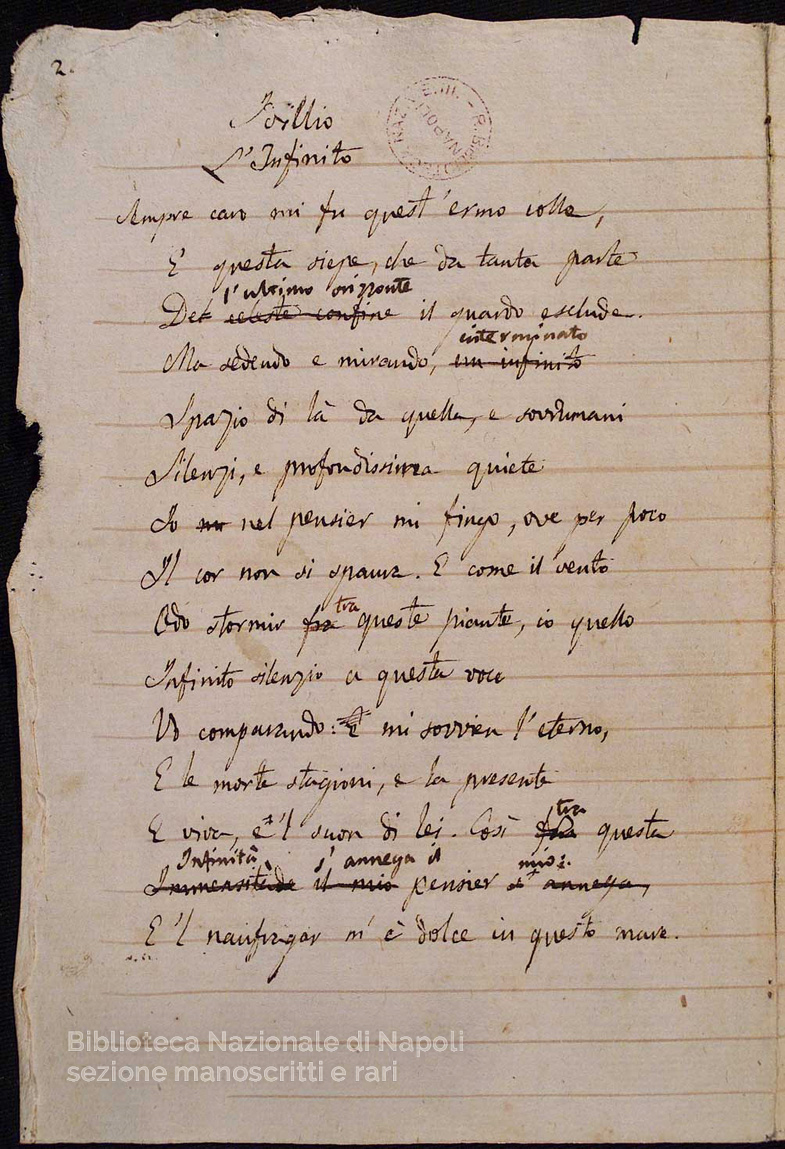 2.
Idillio
L'Infinito
Sempre caro mi fu quest'ermo colle,
E questa siepe, che da tanta parte
l'ultimo orizzonte
Del celeste confine il guardo esclude.
interminato
Ma sedendo e mirando, un infinito
Spazio di là da quella, e sovrumani
Silenzi, e profondissima quiete
Io nel pensier mi fingo, ove per poco
Il cor non si spaura. E come il vento
tra
Odo stormir fra queste piante, io quello
Infinito silenzio a questa voce
Vo comparando: E mi sovvien l'eterno,
E le morte stagioni, e la presente
tra
E viva, e 'l suon di lei. Così fra questa
Infinità s'annega il mio:
Immensitade il mio pensier s'annega,
E 'l naufragar m'è dolce in questo mare.
Biblioteca Nazionale di Napoli
sezione manoscritti e rari